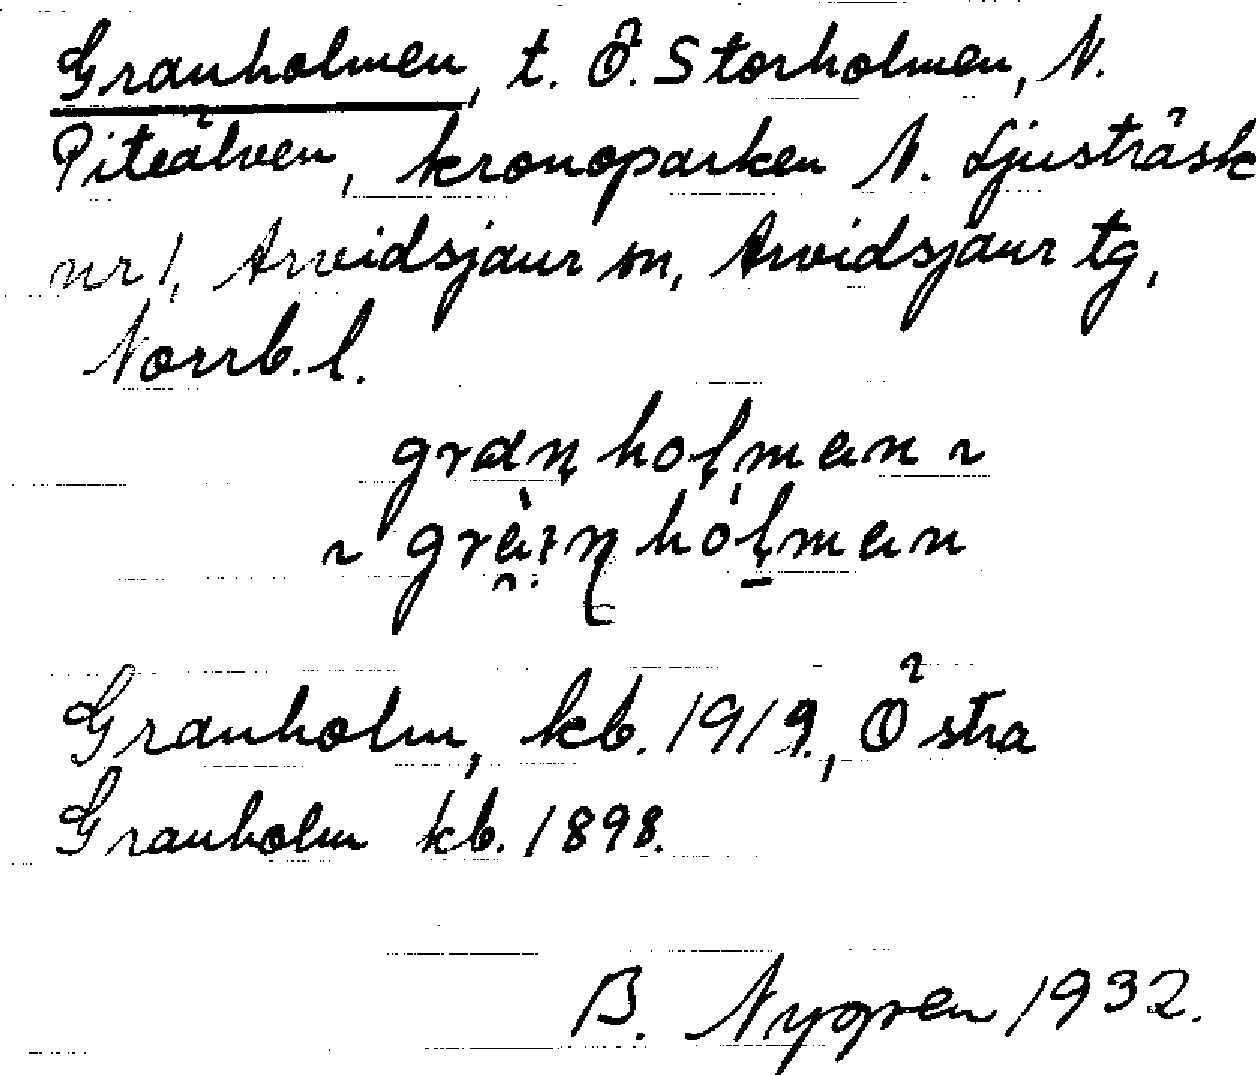 Granholmen, t. Ö. Storholmen, N.
Piteälven, kronoparken N. Ljusträsk
nr 1, Arvidsjaur sn, Arvidsjaur tg,
Norrb. l.
Granholm, kb. 1919, Östra
Granholm kb. 1898.
B. Nygren 1932.